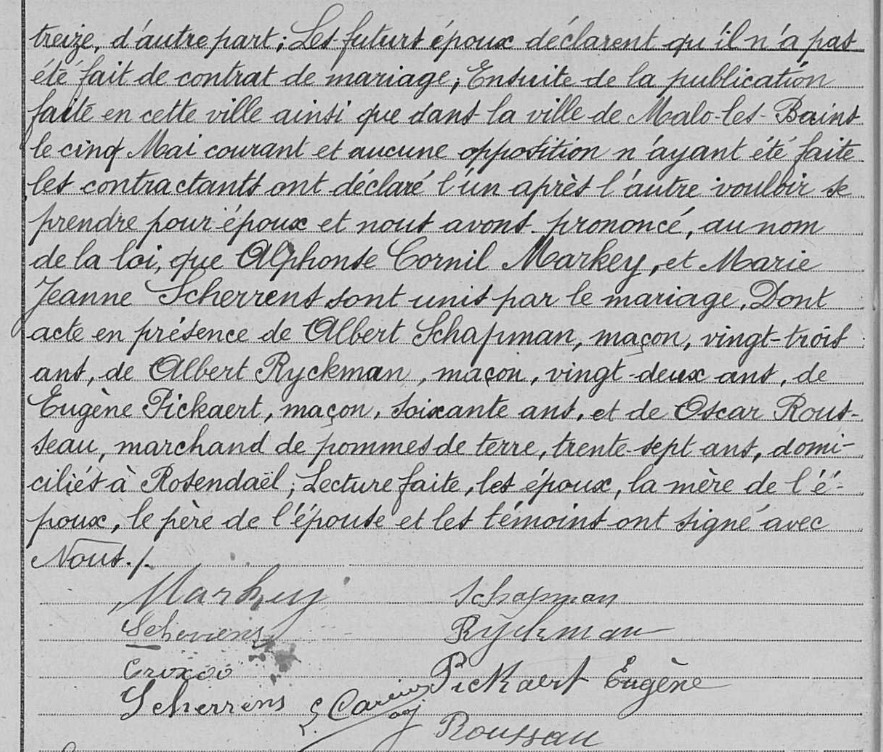 treize, d'autre part; Les futurs époux déclarent qu'il n'a pas
été fait de contrat de mariage; Ensuite de la publication
faite en cette ville ainsi que dans la ville de Malo-les-Bains
le cinq Mai courant et aucune opposition n'ayant été faite
les contractants ont déclaré l'un après l'autre vouloir se
prendre pour époux et nous avons prononcé, au nom
de la loi, que Alphonse Cornil Markey, et Marie
Jeanne Scherrens sont unis par le mariage. Dont
acte en présence de Albert Schapman, maçon, vingt-trois
ans, de Albert Ryckman, maçon, vingt-deux ans, de
Eugène Pickaert, maçon, soixante ans, et de Oscar Rous-
seau, marchand de pommes de terre, trente-sept ans, domi-
ciliés à Rosendaël; Lecture faite, les époux, la mère de l'é-
poux, le père de l'épouse et les témoins ont signé avec
Nous./.
Markey Schapman
Scherrens Ryckman
Pickaert Eugène
Scherrens
Rousseau